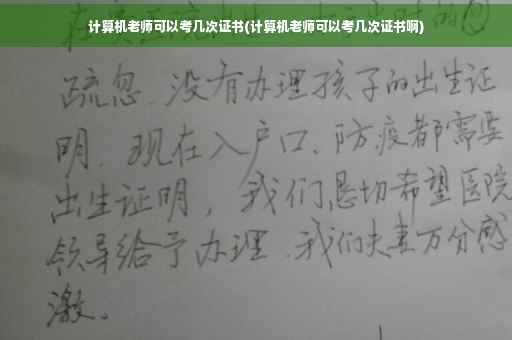 计算机老师可以考几次证书(计算机老师可以考几次证书啊)
疏忽、没有办理孩子的出生证
明、现在入户口、防疫都需要
出生证明，我们恳切希望医院
领导给予办理、我们夫妻万分感
激。